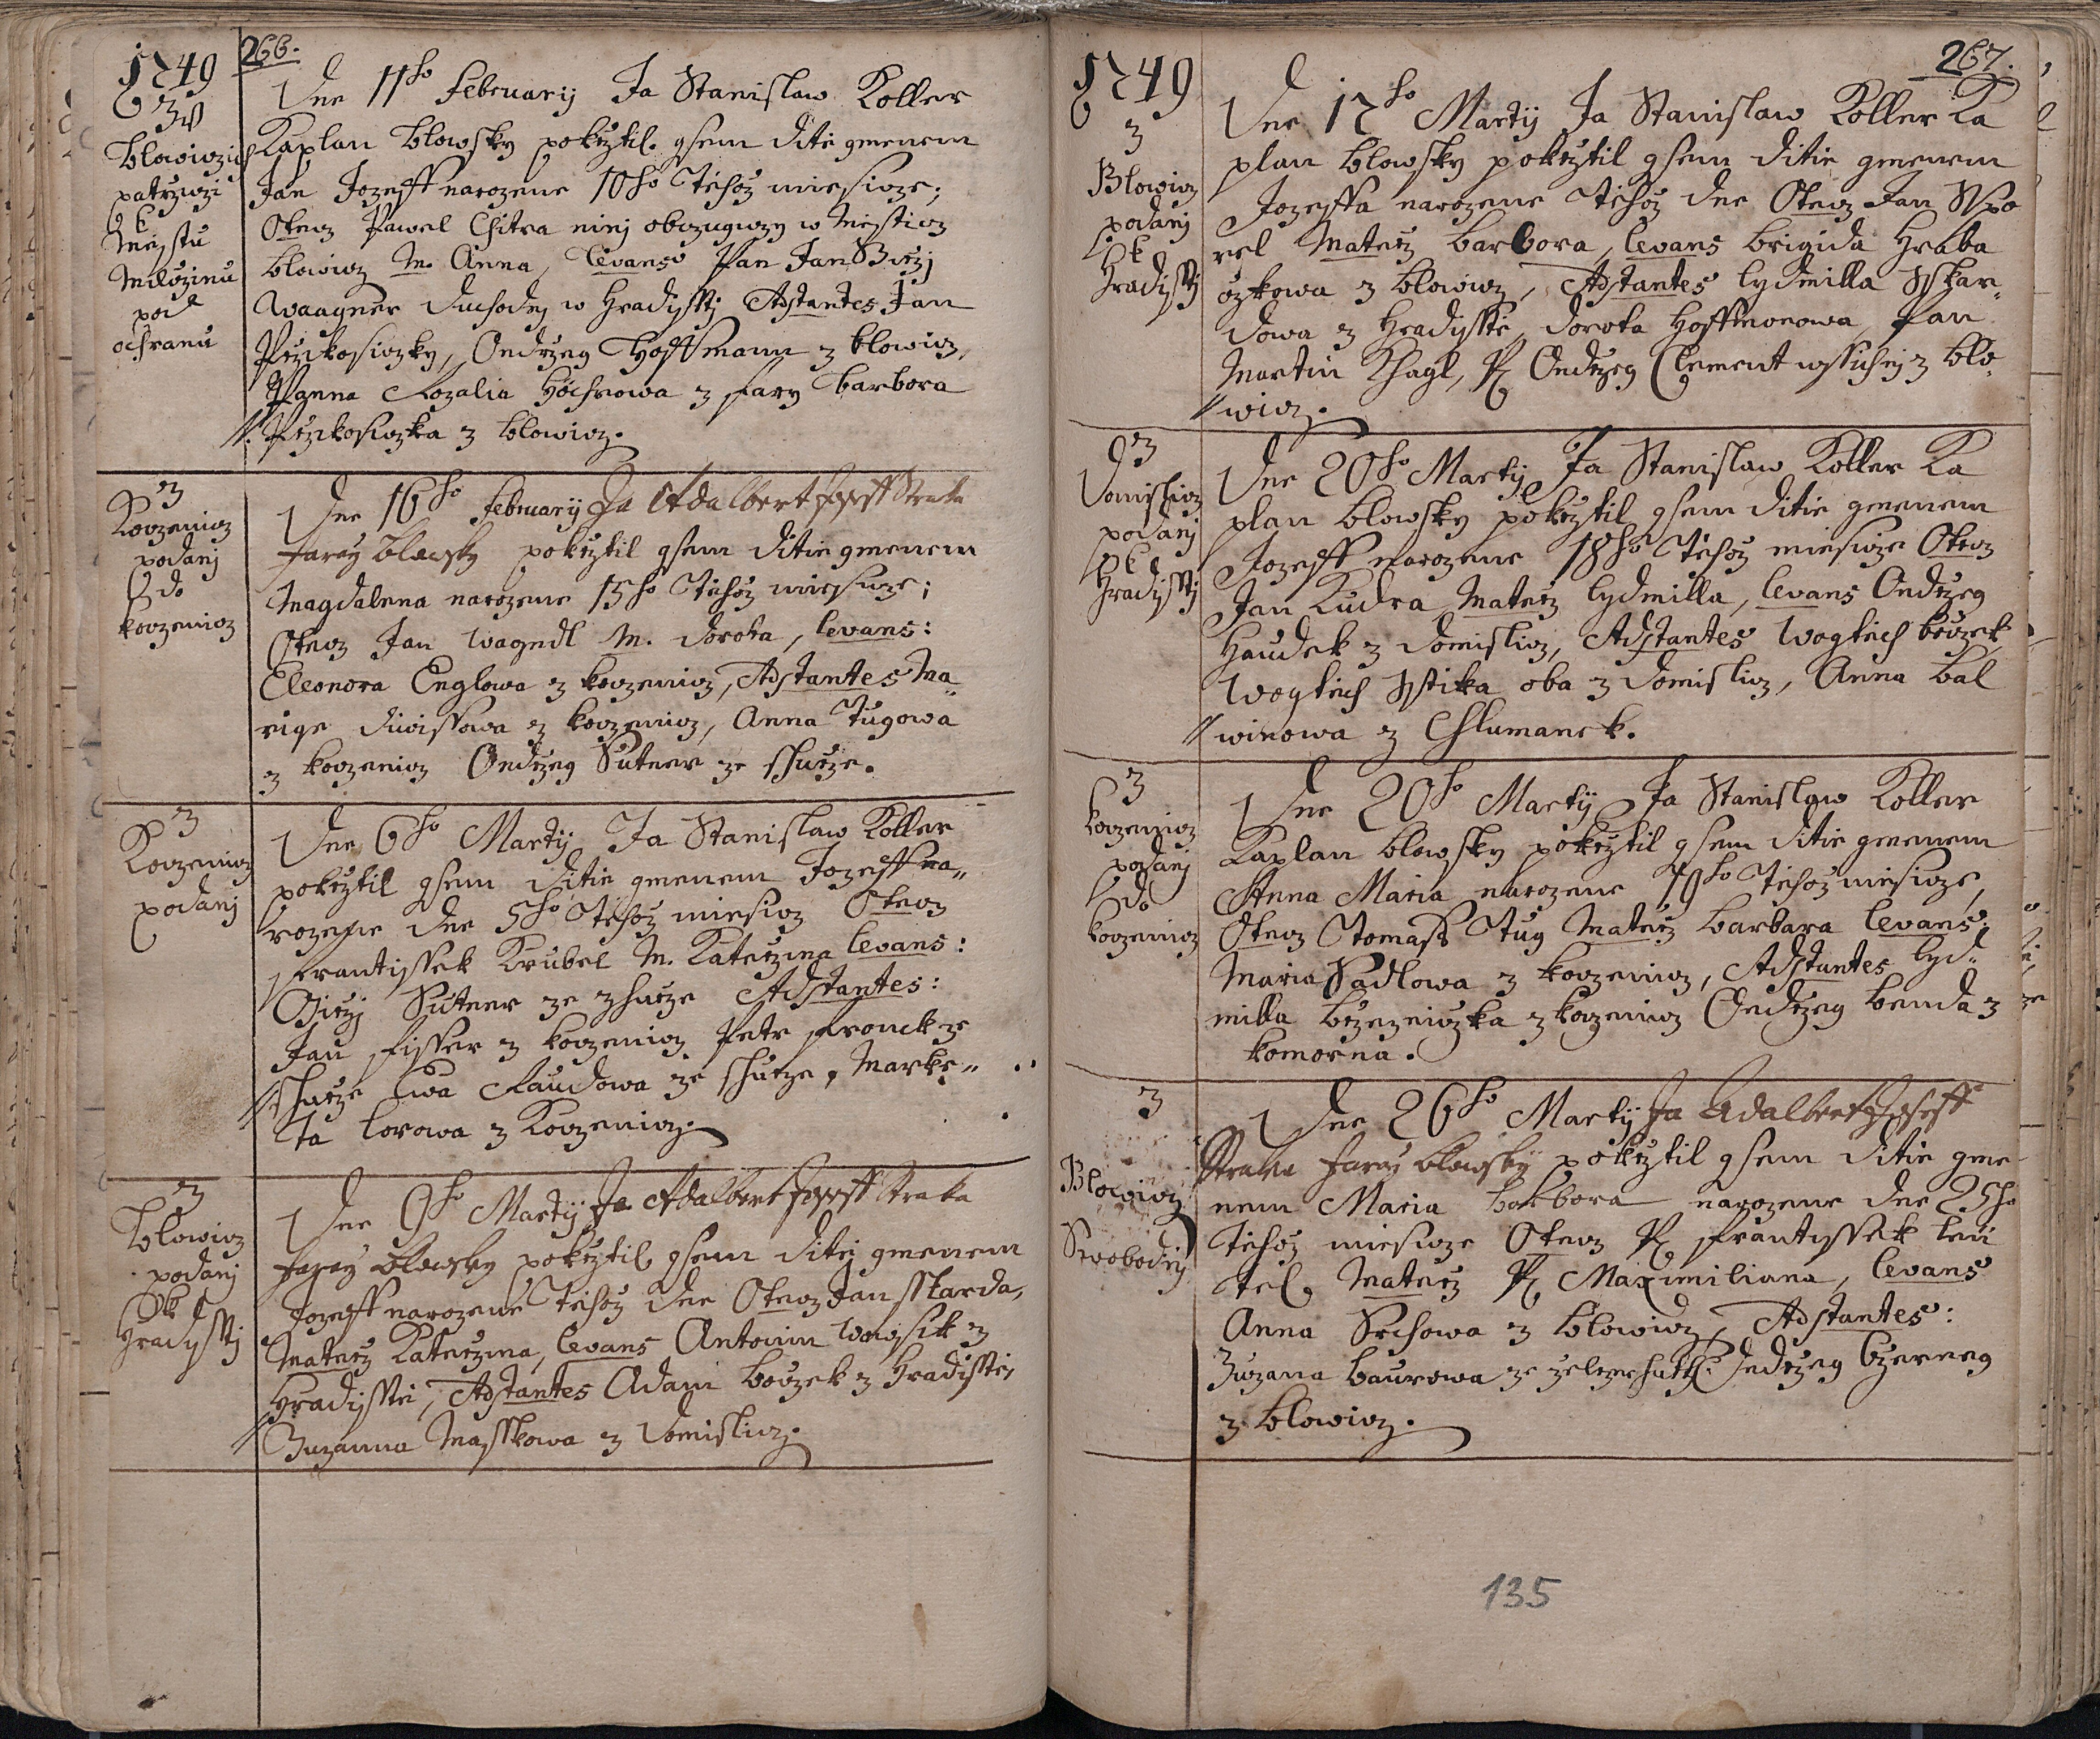 266.
1749
Z
Blowiczich
patrziczi
k
Miestu
Miloczinu
pod
ochranu
Dne 11ho February Ja Stanislaw Koller
Kaplan blowsky pokrztil gsem ditie gmenem
Jan Jozeff narozene 10ho Tehoz miesicze;
Otecz Pawel Chitra ninj obczugiczy w Miesticz
blowicz M. Anna, levans Pan Jan Girzj
Waagner duchodny w Hradisstj Adstantes Jan
Przikosiczky, Ondrzeg Hoffmann z blowicz,
Panna Rozalia Hochowa z fary barbora
Przikosiczka z blowicz.
Z
Koczenicz
podanj
do
koczenicz
Dne 16ho February Ja Adalbert Joseff Straka
Fararz blowsky pokrztil gsem ditie gmenem
Magdalena narozene 15ho Tehoz miesicze;
Otecz Jan Wagndl M. dorota, levans:
Eleonora Englowa z koczenicz, Adstantes Ma„
rige diwissowa z koczenicz, Anna Tugowa
z koczenicz Ondrzeg Sutner ze shurze.
Z
Koczenicz
podanj
Dne 6ho Martij Ja Stanislaw Koller
pokrztil gsem ditie gmenem Jozeff na„
rozene dne 5ho Tehoz miesicz Otecz
frantissek Krubel M. Katerzina levans:
Girzj Sutner ze zhurze Adstantes:
Jan fisser z koczenicz Petr fronek ze
shurze Ewa Raudowa ze shurze, Marke„
ta lorowa z Koczenicz.
Z
blowicz
podanj
k
Hradisstj
Dne 9ho Martij Ja Adalbert Joseff Straka
Fararz blowsky pokrztil gsem ditej gmenem
Jozeff narozene Tehoz dne Otecz Jan sskarda,
Materz Katerzina, levans Antonin Wogsik z
Hradisstie, Adstantes Adam boczek z Hradisstie,
Zuzanna Masskowa z domislicz.
267.
1749
z
Blowicz
podanj
k
Hradisstj
Dne 12ho Martij Ja Stanislaw Koller Ka
plan blowsky pokrztil gsem ditie gmenem
Jozeffa narozene Tehoz dne Otecz Jan Sspo
rel Materz barbora, levans brigida Hraba
czkowa z blowicz, Adstantes lydmilla Sskar„
dowa z Hradisstie, dorota Hoffmonowa, Pan
Martin Khagl, P. Ondrzeg Clement wssichnj z blo„
wicz.
z
Domislicz
podanj
k
Hradisstj
Dne 20ho Martij Ja Stanislaw Koller Ka
plan blowsky pokrztil gsem ditie gmenem
Jozeff narozene 18ho Tehoz miesicze Otecz
Jan Kudra Materz lydmilla, levans Ondrzeg
Haudek z domislicz, Adstantes Wogtiech boczek,
Wogtiech Sstika oba z domislicz, Anna bal
winowa z Chlumanek.
z
koczenicz
podanj
do
koczenicz
Dne 20ho Martij Ja Stanislaw Koller
Kaplan blowsky pokrztil gsem ditie gmenem
Anna Maria narozene 19ho Tehoz miesicze,
Otecz Tomass Tug Materz barbara levans:
Maria Sadlowa z koczenicz, Adstantes lyd„
milla brzezniczka z koczenicz Ondrzeg benda z
komorna.
z
Blowicz
Swobodnj
Dne 26ho Martij Ja Adalbert Joseff
Straka Fararz blowsky pokrztil gsem ditie gme
nem Maria barbora narozene dne 25ho
Tehoz miesicze Otecz P. frantissek lei
tel Materz P. Maximiliana, levans
Anna Srchowa z blowicz, Adstantes:
Zuzana baurowa ze Ondrzeg Czerneg
z blowicz.
135